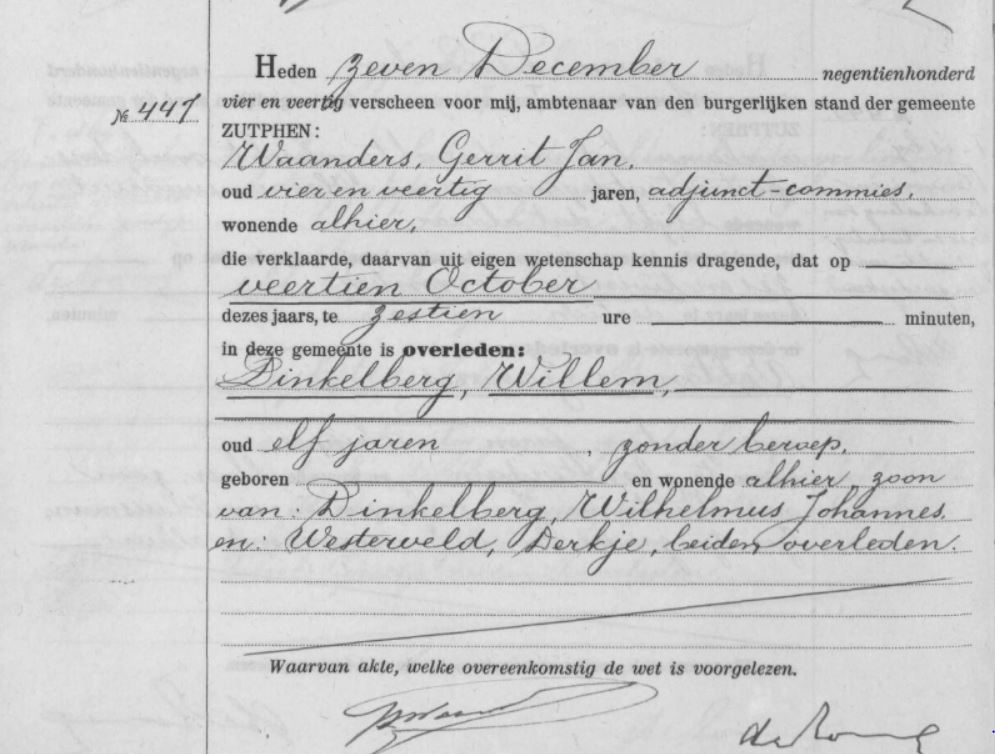 Heden zeven December negentienhonderd
№ 447
vier en veertig verscheen voor mij, ambtenaar van den burgerlijken stand der gemeente
ZUTPHEN:
Waanders, Gerrit Jan,
oud vier en veertig jaren, adjunct-commies,
wonende alhier,
die verklaarde, daarvan uit eigen wetenschap kennis dragende, dat op
veertien October
dezes jaars, te zestien ure minuten,
in deze gemeente is overleden:
Dinkelberg, Willem,
oud elf jaren, zonder beroep,
geboren en wonende alhier, zoon
van: Dinkelberg, Wilhelmus Johannes,
en: Westerveld, Derkje, beiden overleden.
Waarvan akte, welke overeenkomstig de wet is voorgelezen.